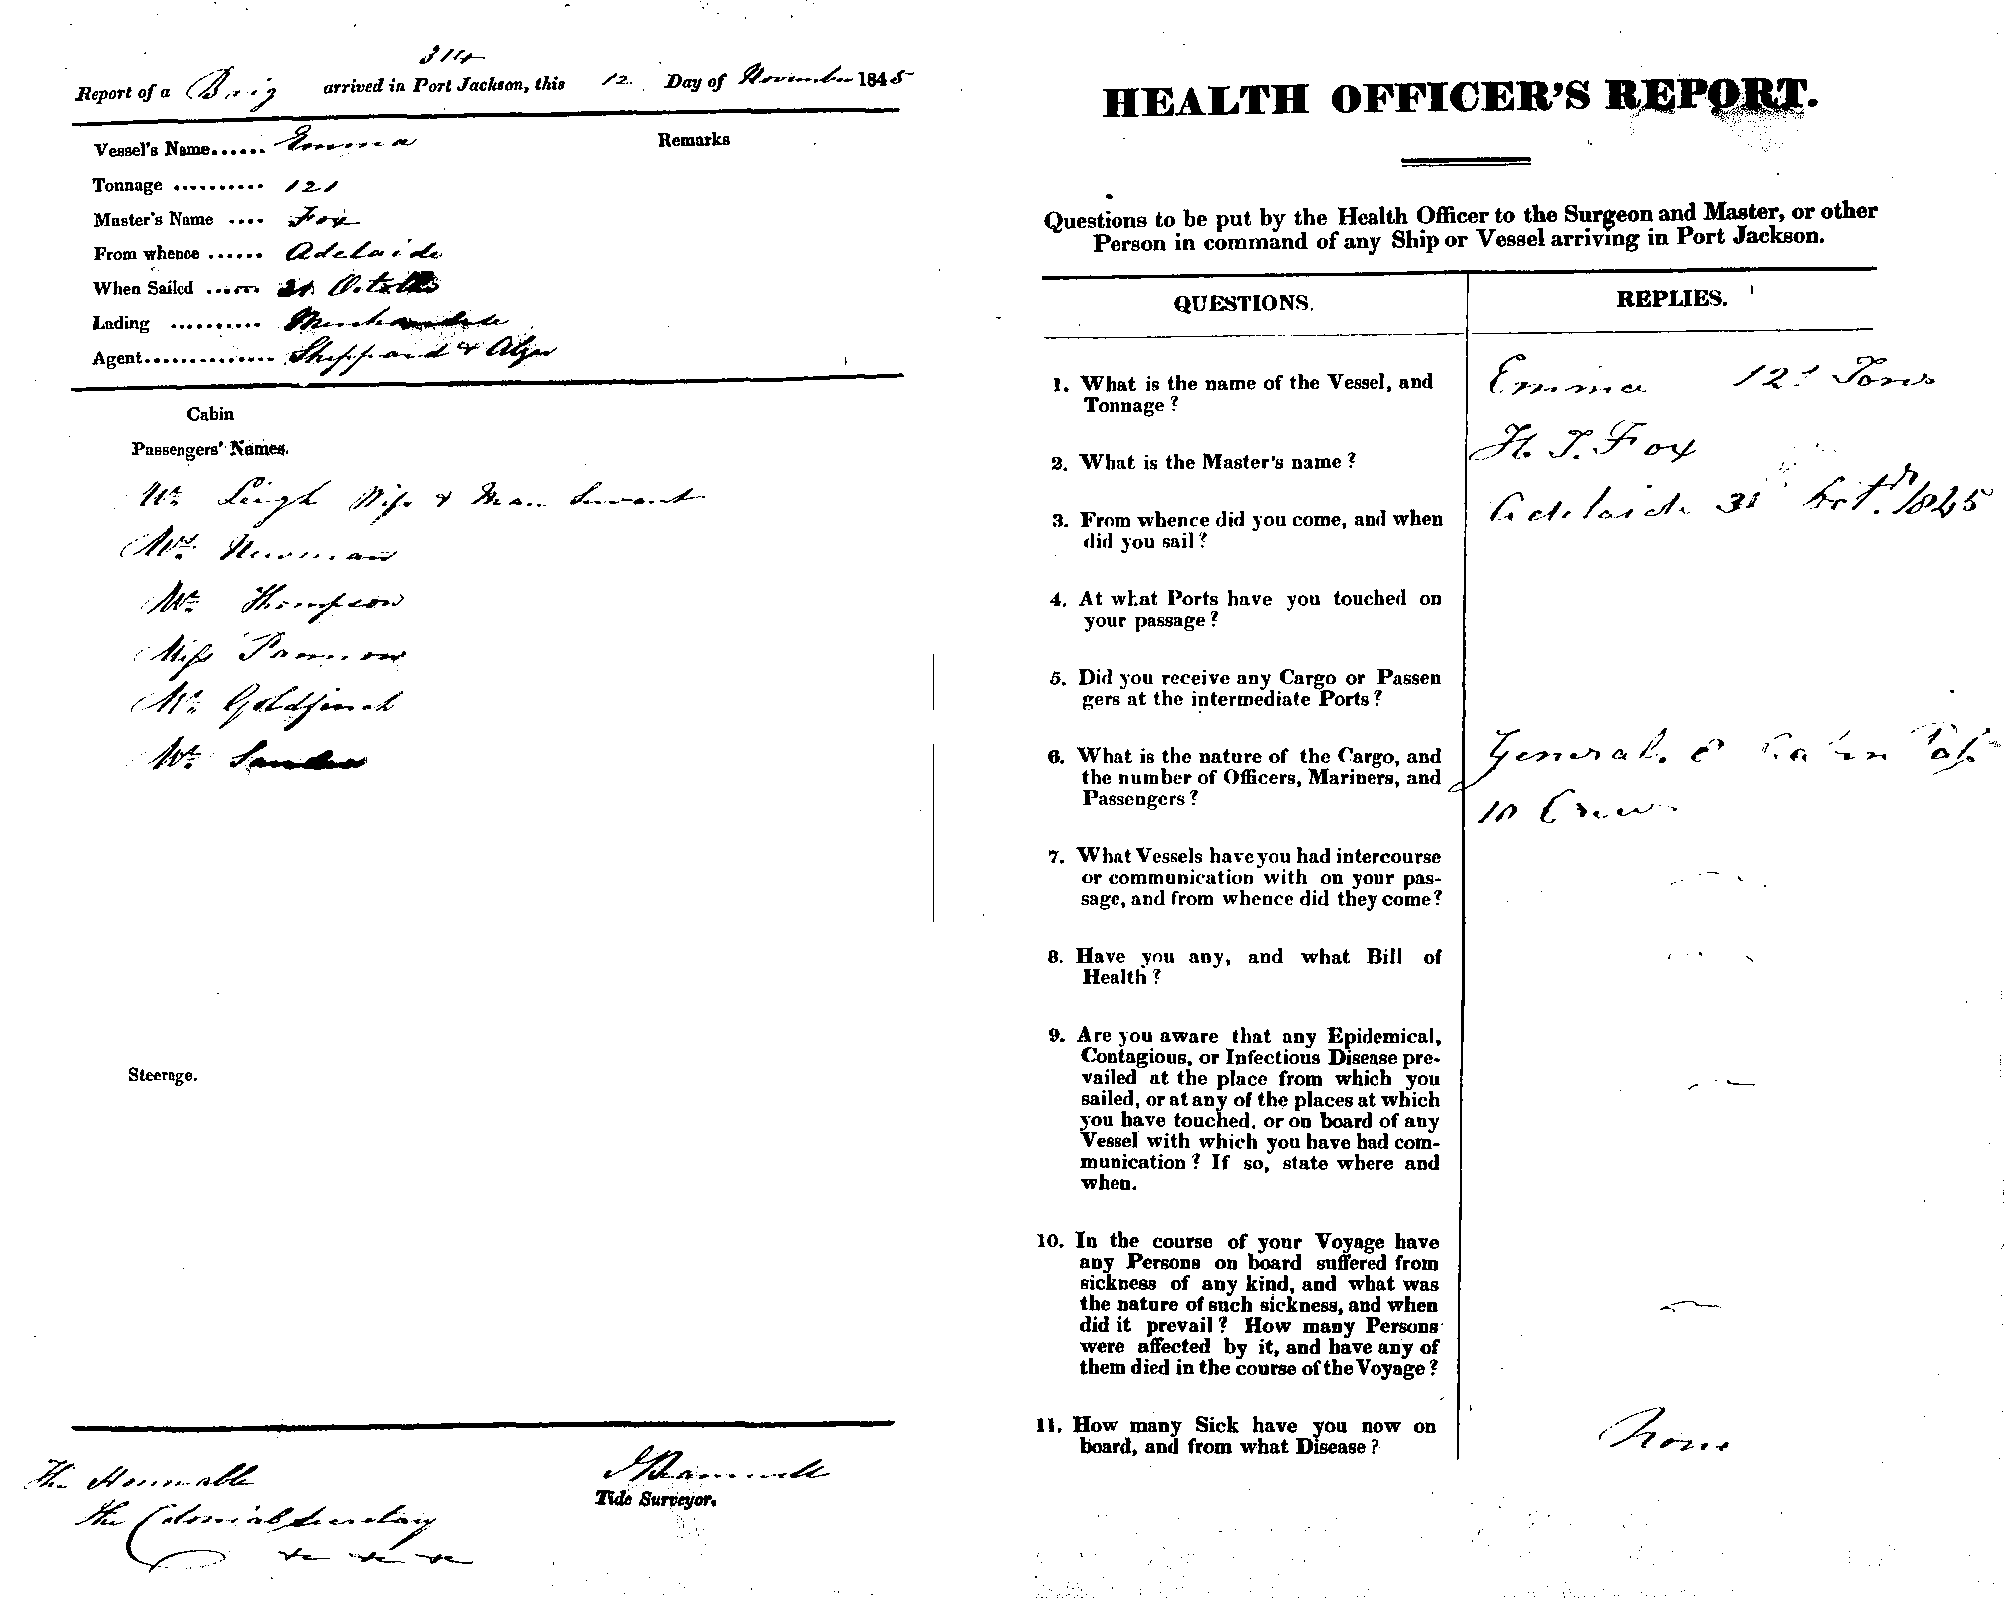 314
Report of a Brig arrived in Port Jackson, this 12 Day of November 1845
Vessel's Name...... Emma
Remarks
Tonnage .......... 121
Master's Name .... Fox
From whence ...... Adelaide
When Sailed ...... 31 Octob
Lading .......... Merchandise
Agent.............. Sheppard & Alger
Cabin
Passengers' Names.
Mr Leigh Wife & Man Servant
Newman
Mr Thompson
Miss
Mr Goldfinch
Mr
Steerage.
The Honorable
The Colonial Secretary
&c &c &c
Tide Surveyor.
HEALTH OFFICER'S REPORT.
Questions to be put by the Health Officer to the Surgeon and Master, or other
Person in command of any Ship or Vessel arriving in Port Jackson.
QUESTIONS.
REPLIES.
1. What is the name of the Vessel, and
Tonnage ?
Emma 121 Tons
2. What is the Master's name ?
H. T. Fox
3. From whence did you come, and when
did you sail ?
Adelaide 31 Octr. 1845
4. At what Ports have you touched on
your passage ?
5. Did you receive any Cargo or Passen
gers at the intermediate Ports ?
6. What is the nature of the Cargo, and
the number of Officers, Mariners, and
Passengers ?
General. 8 Cabin Pass
10 Crew
7. What Vessels have you had intercourse
or communication with on your pas-
sage, and from whence did they come?
8. Have you any, and what Bill of
Health ?
9. Are you aware that any Epidemical,
Contagious, or Infectious Disease pre-
vailed at the place from which you
sailed, or at any of the places at which
you have touched, or on board of any
Vessel with which you have had com-
munication ? If so, state where and
when.
10. In the course of your Voyage have
any Persons on board suffered from
sickness of any kind, and what was
the nature of such sickness, and when
did it prevail ? How many Persons
were affected by it, and have any of
them died in the course of the Voyage ?
11. How many Sick have you now on
board, and from what Disease ?
None